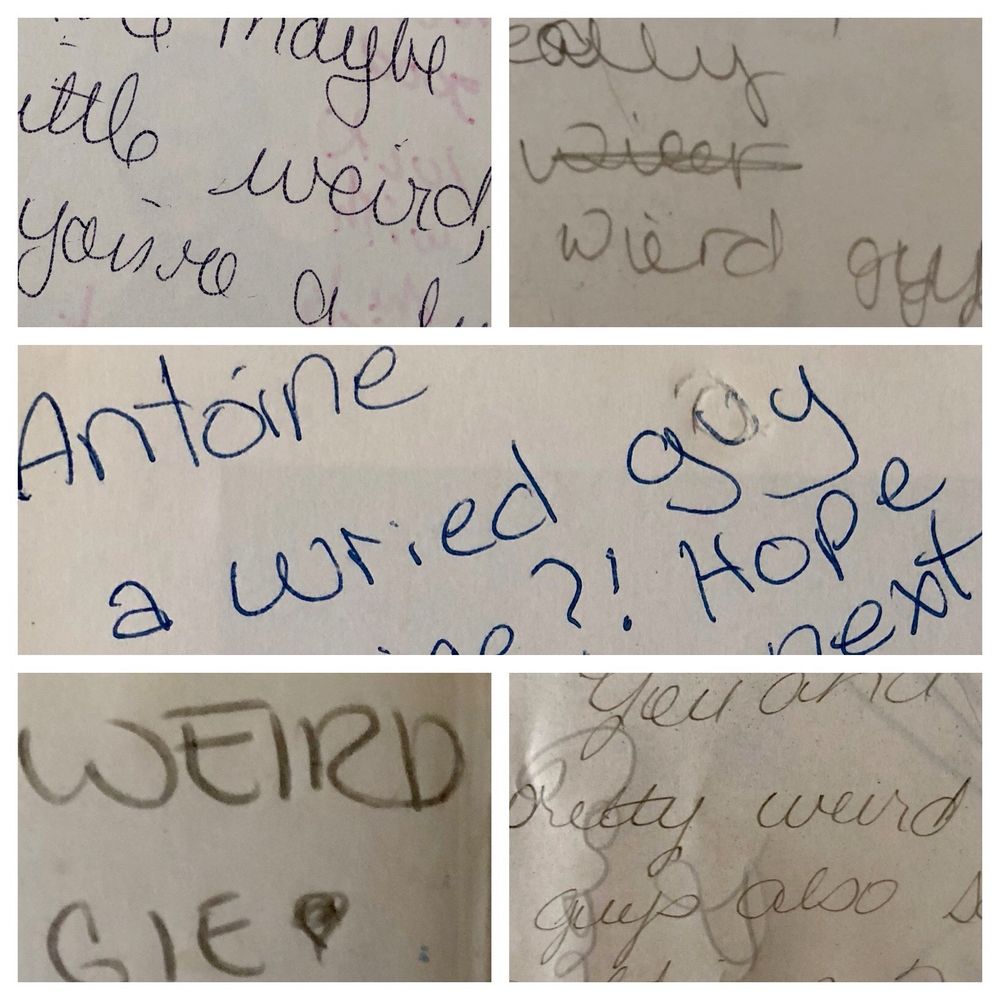 maybe
ittle weird,
you're a
eally
wierd guy
Antoine
a wried guy
?! HOPE
next
WEIRD
GIE
You and
Pretty weird
guys also